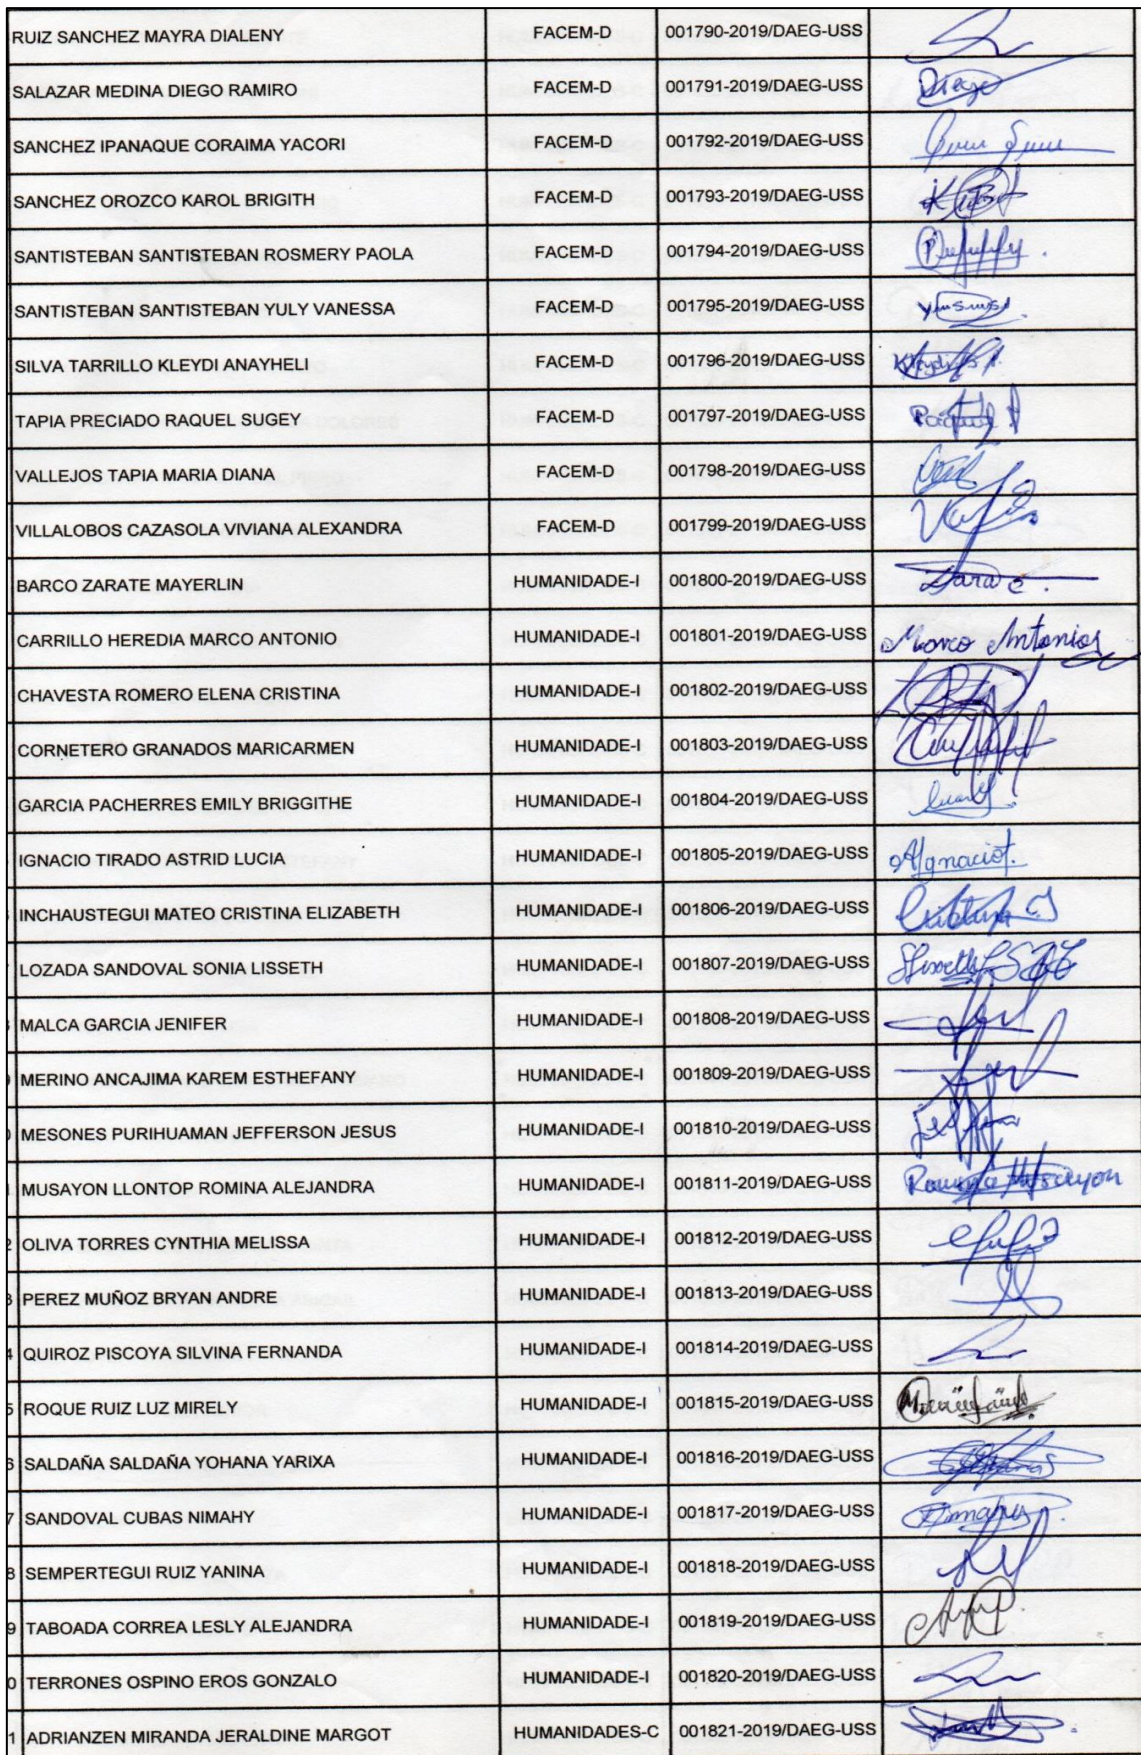 RUIZ SANCHEZ MAYRA DIALENY FACEM-D 001790-2019/DAEG-USS
SALAZAR MEDINA DIEGO RAMIRO FACEM-D 001791-2019/DAEG-USS Diego
SANCHEZ IPANAQUE CORAIMA YACORI FACEM-D 001792-2019/DAEG-USS
SANCHEZ OROZCO KAROL BRIGITH FACEM-D 001793-2019/DAEG-USS
SANTISTEBAN SANTISTEBAN ROSMERY PAOLA FACEM-D 001794-2019/DAEG-USS
SANTISTEBAN SANTISTEBAN YULY VANESSA FACEM-D 001795-2019/DAEG-USS
SILVA TARRILLO KLEYDI ANAYHELI FACEM-D 001796-2019/DAEG-USS
TAPIA PRECIADO RAQUEL SUGEY FACEM-D 001797-2019/DAEG-USS
VALLEJOS TAPIA MARIA DIANA FACEM-D 001798-2019/DAEG-USS
VILLALOBOS CAZASOLA VIVIANA ALEXANDRA FACEM-D 001799-2019/DAEG-USS
BARCO ZARATE MAYERLIN HUMANIDADE-I 001800-2019/DAEG-USS
CARRILLO HEREDIA MARCO ANTONIO HUMANIDADE-I 001801-2019/DAEG-USS Marco Antonio
CHAVESTA ROMERO ELENA CRISTINA HUMANIDADE-I 001802-2019/DAEG-USS
CORNETERO GRANADOS MARICARMEN HUMANIDADE-I 001803-2019/DAEG-USS
GARCIA PACHERRES EMILY BRIGGITHE HUMANIDADE-I 001804-2019/DAEG-USS
IGNACIO TIRADO ASTRID LUCIA HUMANIDADE-I 001805-2019/DAEG-USS AIgnacioT.
INCHAUSTEGUI MATEO CRISTINA ELIZABETH HUMANIDADE-I 001806-2019/DAEG-USS
LOZADA SANDOVAL SONIA LISSETH HUMANIDADE-I 001807-2019/DAEG-USS
MALCA GARCIA JENIFER HUMANIDADE-I 001808-2019/DAEG-USS
MERINO ANCAJIMA KAREM ESTHEFANY HUMANIDADE-I 001809-2019/DAEG-USS
MESONES PURIHUAMAN JEFFERSON JESUS HUMANIDADE-I 001810-2019/DAEG-USS
MUSAYON LLONTOP ROMINA ALEJANDRA HUMANIDADE-I 001811-2019/DAEG-USS Romina Musayon
2 OLIVA TORRES CYNTHIA MELISSA HUMANIDADE-I 001812-2019/DAEG-USS
3 PEREZ MUÑOZ BRYAN ANDRE HUMANIDADE-I 001813-2019/DAEG-USS
4 QUIROZ PISCOYA SILVINA FERNANDA HUMANIDADE-I 001814-2019/DAEG-USS
5 ROQUE RUIZ LUZ MIRELY HUMANIDADE-I 001815-2019/DAEG-USS
6 SALDAÑA SALDAÑA YOHANA YARIXA HUMANIDADE-I 001816-2019/DAEG-USS
7 SANDOVAL CUBAS NIMAHY HUMANIDADE-I 001817-2019/DAEG-USS
8 SEMPERTEGUI RUIZ YANINA HUMANIDADE-I 001818-2019/DAEG-USS
9 TABOADA CORREA LESLY ALEJANDRA HUMANIDADE-I 001819-2019/DAEG-USS
0 TERRONES OSPINO EROS GONZALO HUMANIDADE-I 001820-2019/DAEG-USS
1 ADRIANZEN MIRANDA JERALDINE MARGOT HUMANIDADES-C 001821-2019/DAEG-USS